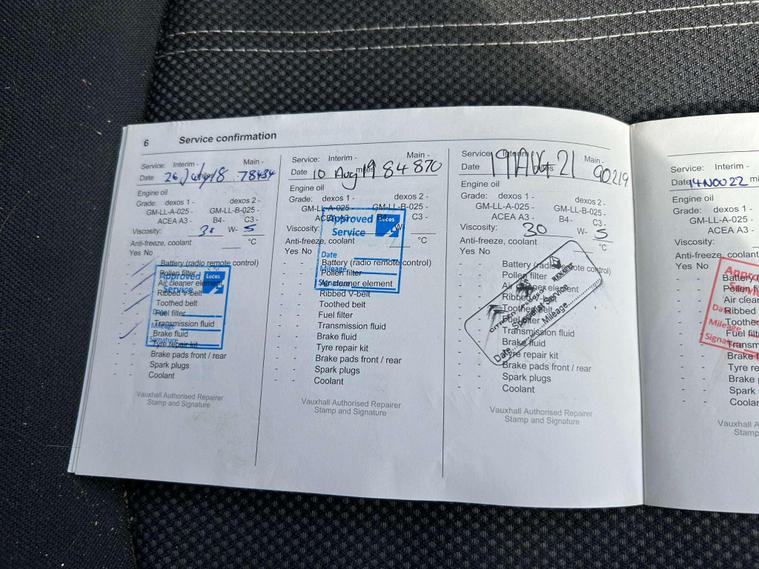 6 Service confirmation
Service: Interim - Main -
Date 26 July 18 78434
Engine oil
Grade: dexos 1 - dexos 2 -
GM-LL-A-025 - GM-LL-B-025 -
ACEA A3 - B4- C3 -
Viscosity: 30 W- 5
Anti-freeze, coolant °C
Yes No
Battery (radio remote control)
Pollen filter
Air cleaner element
Ribbed V-belt
Toothed belt
Fuel filter
Transmission fluid
Brake fluid
Tyre repair kit
Brake pads front / rear
Spark plugs
Coolant
Approved Lucas
Service
Date
Mileage
Signature
Vauxhall Authorised Repairer
Stamp and Signature
Service: Interim - Main -
Date 10 Aug 19 84870
Engine oil
Grade: dexos 1 - dexos 2 -
GM-LL-A-025 - GM-LL-B-025 -
ACEA A3 - B4- C3 -
Viscosity: W-
Anti-freeze, coolant °C
Yes No
Battery (radio remote control)
Pollen filter
Air cleaner element
Ribbed V-belt
Toothed belt
Fuel filter
Transmission fluid
Brake fluid
Tyre repair kit
Brake pads front / rear
Spark plugs
Coolant
Approved Lucas
Service
Date
Mileage
Signature
Vauxhall Authorised Repairer
Stamp and Signature
Service: Interim Main -
Date 17 AUG 21 90219
Engine oil
Grade: dexos 1 - dexos 2 -
GM-LL-A-025 - GM-LL-B-025 -
ACEA A3 - B4- C3 -
Viscosity: 30 W- 5
Anti-freeze, coolant °C
Yes No
Battery (radio remote control)
Pollen filter
Air cleaner element
Ribbed V-belt
Toothed belt
Fuel filter
Transmission fluid
Brake fluid
Tyre repair kit
Brake pads front / rear
Spark plugs
Coolant
RENAULT
Date Mileage
Vauxhall Authorised Repairer
Stamp and Signature
Service: Interim -
Date 14 NOV 22 m
Engine oil
Grade: dexos 1 -
GM-LL-A-025 -
ACEA A3 -
Viscosity:
Anti-freeze, coolant
Yes No
Battery
Pollen fi
Air clear
Ribbed
Toothe
Fuel filt
Transm
Brake
Tyre re
Brake p
Spark
Coolan
Mileage
Signat
Vauxha
Stamp